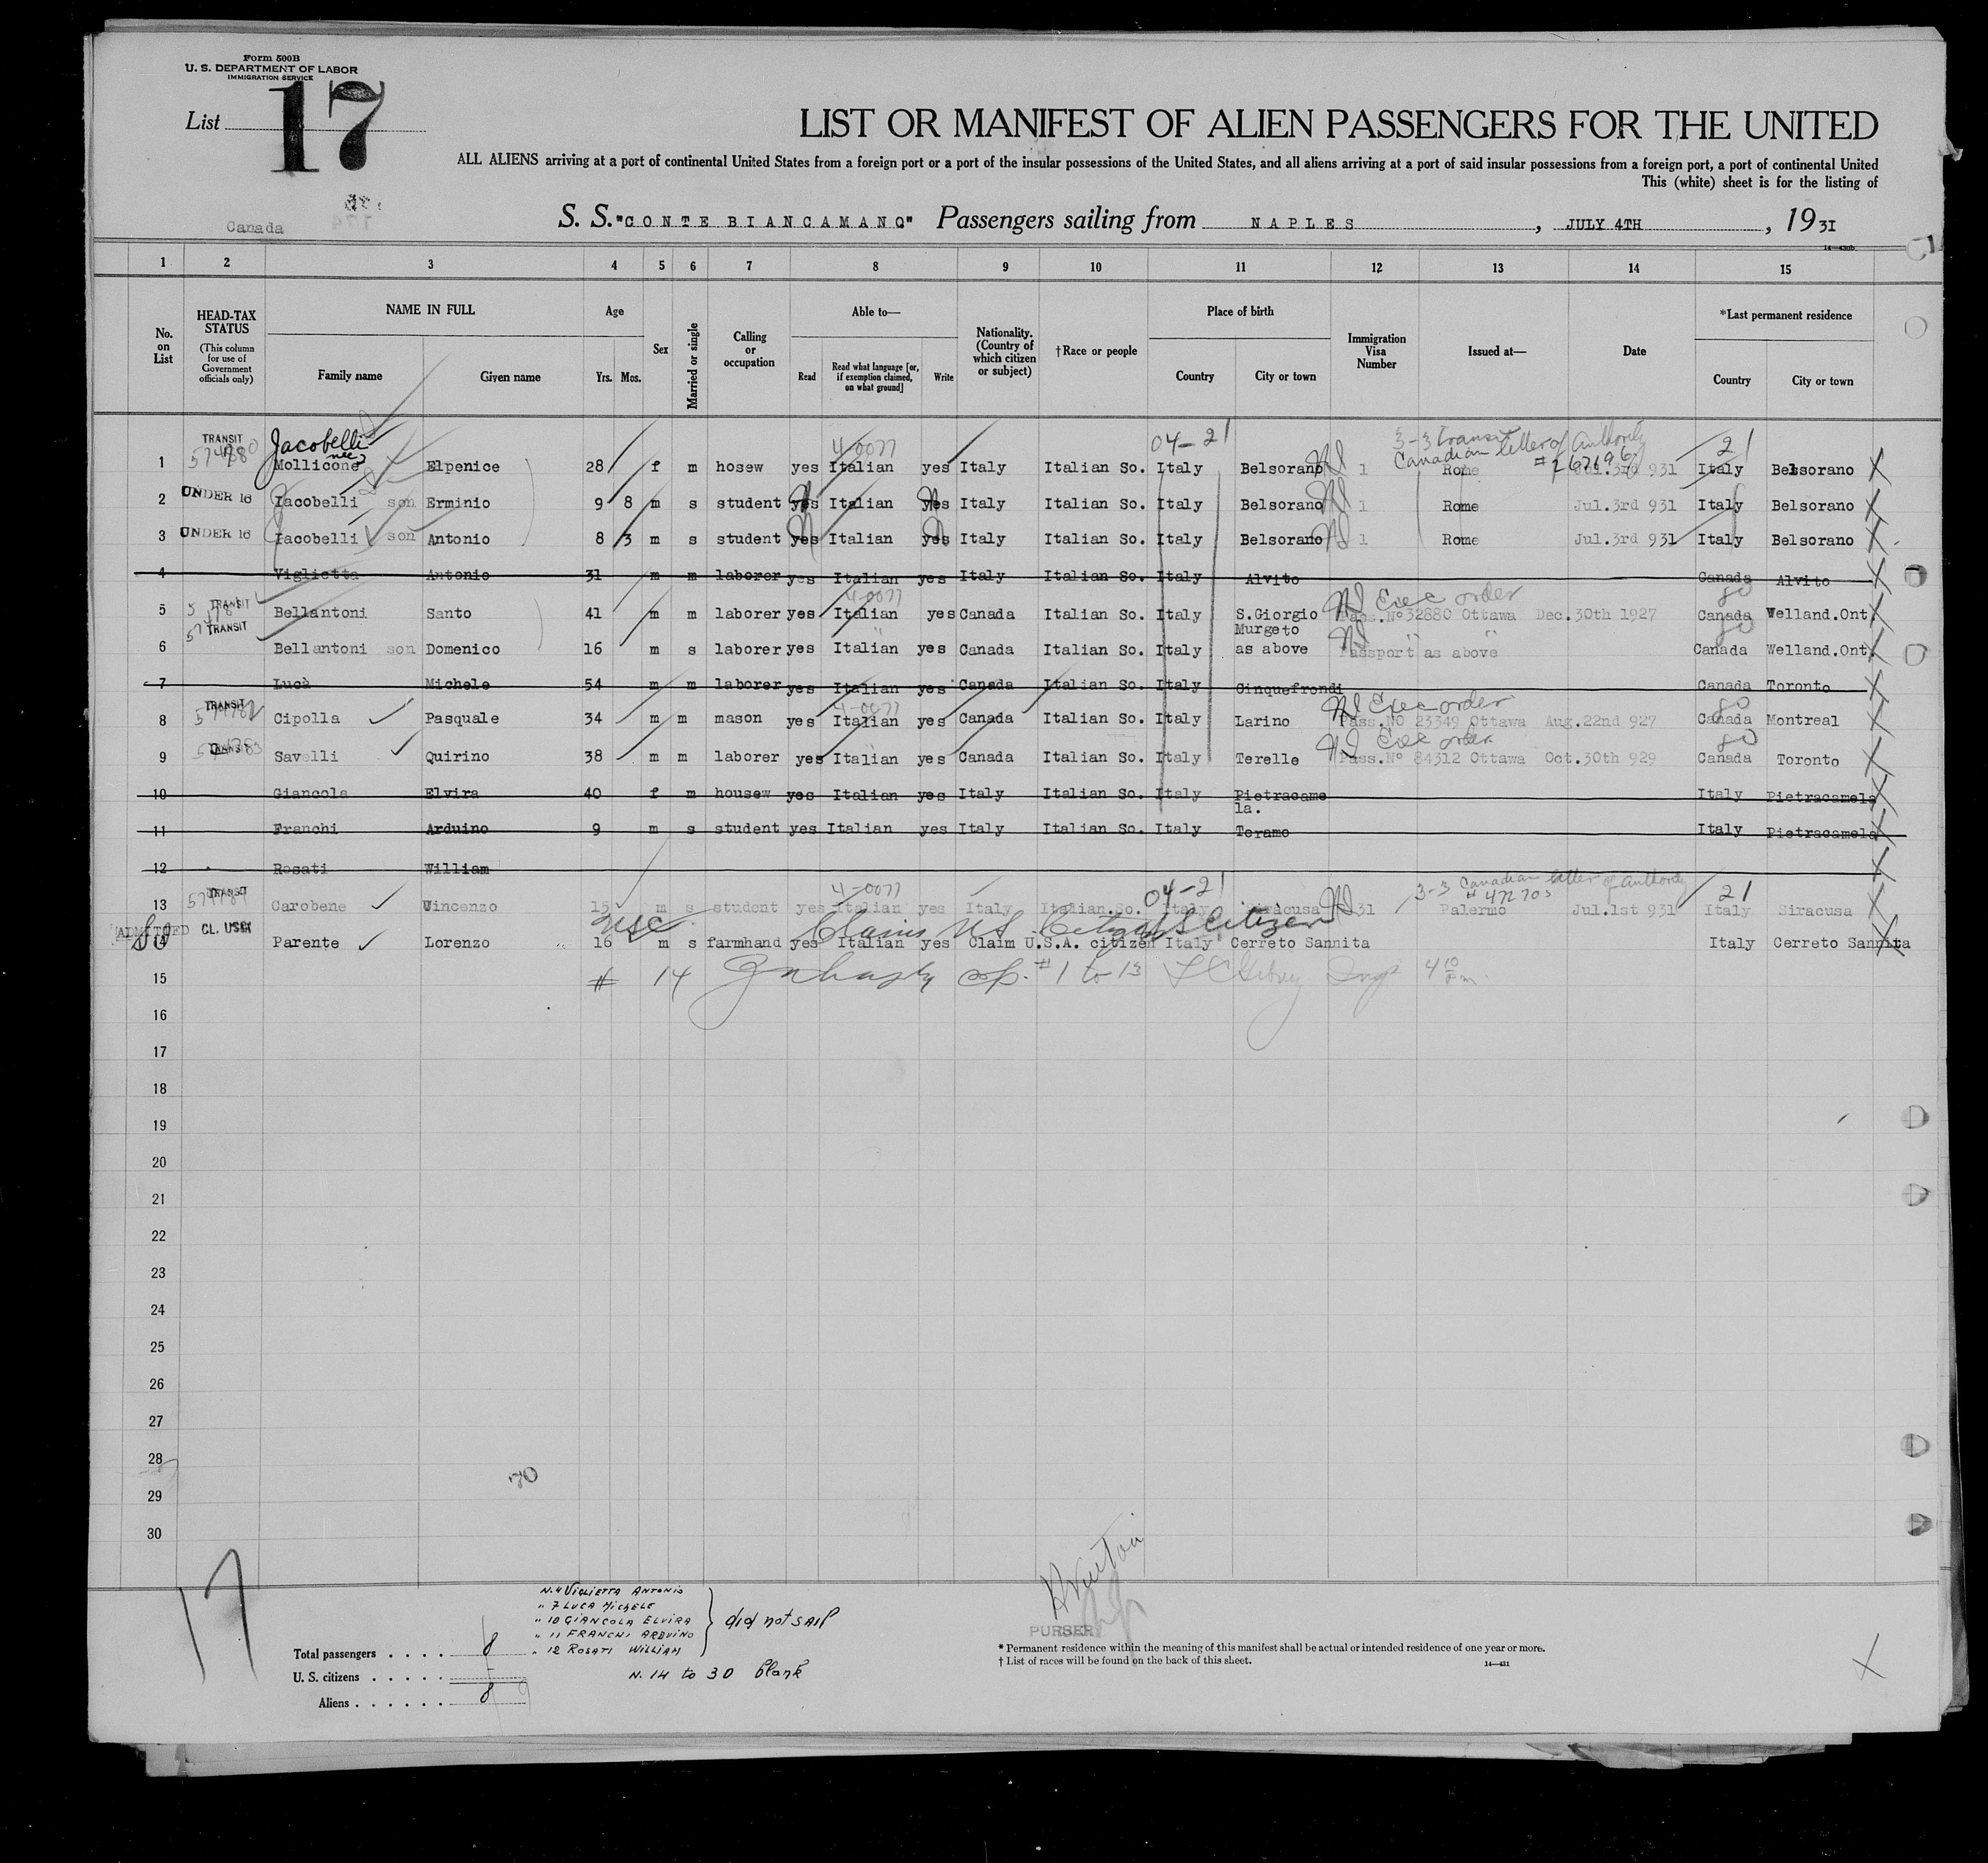 Form 500B
U. S. DEPARTMENT OF LABOR
IMMIGRATION SERVICE
List 17
LIST OR MANIFEST OF ALIEN PASSENGERS FOR THE UNITED
ALL ALIENS arriving at a port of continental United States from a foreign port or a port of the insular possessions of the United States, and all aliens arriving at a port of said insular possessions from a foreign port, a port of continental United
This (white) sheet is for the listing of
Canada
S. S. "CONTE BIANCAMANO" Passengers sailing from NAPLES, JULY 4TH, 1931
14—430b
1 2 3 4 5 6 7 8 9 10 11 12 13 14 15
No. on List
HEAD-TAX STATUS
(This column for use of Government officials only)
NAME IN FULL
Family name Given name
Age
Yrs. Mos.
Sex
Married or single
Calling or occupation
Able to—
Read
Read what language [or, if exemption claimed, on what ground]
Write
Nationality. (Country of which citizen or subject)
†Race or people
Place of birth
Country City or town
Immigration Visa Number
Issued at—
Date
*Last permanent residence
Country City or town
Jacobelli 4-0077 04-21 3-3 transit Canadian letter of Authority #267196 21
1 TRANSIT Mollicone nee Elpenice 28 f m hosew yes Italian yes Italy Italian So. Italy Belsorano 1 Rome Jul.3rd 931 Italy Belsorano X
2 UNDER 16 Iacobelli son Erminio 9 8 m s student yes Italian yes Italy Italian So. Italy Belsorano 1 Rome Jul.3rd 931 Italy Belsorano X
3 UNDER 16 Iacobelli son Antonio 8 3 m s student yes Italian yes Italy Italian So. Italy Belsorano 1 Rome Jul.3rd 931 Italy Belsorano X
4 Viglietta Antonio 31 m m laborer yes Italian yes Italy Italian So. Italy Alvito Canada Alvito X
4-0077 Exec order 80
5 TRANSIT Bellantoni Santo 41 m m laborer yes Italian yes Canada Italian So. Italy S.Giorgio Murgeto Pass.Nº 32880 Ottawa Dec.30th 1927 Canada Welland.Ont. X
6 TRANSIT Bellantoni son Domenico 16 m s laborer yes Italian yes Canada Italian So. Italy as above Passport as above Canada Welland.Ont. X
7 Lucà Michele 54 m m laborer yes Italian yes Canada Italian So. Italy Cinquefrondi Canada Toronto X
4-0077 Exec order 80
8 TRANSIT Cipolla Pasquale 34 m m mason yes Italian yes Canada Italian So. Italy Larino Pass.NO 23349 Ottawa Aug.22nd 927 Canada Montreal X
Exec order 80
9 TRANSIT Savelli Quirino 38 m m laborer yes Italian yes Canada Italian So. Italy Terelle Pass.Nº 84312 Ottawa Oct.30th 929 Canada Toronto X
10 Giancola Elvira 40 f m housew yes Italian yes Italy Italian So. Italy Pietracamela. Italy Pietracamela X
11 Franchi Arduino 9 m s student yes Italian yes Italy Italian So. Italy Teramo Italy Pietracamela X
12 Rosati William X
4-0077 04-21 3-3 Canadian letter of authority 21
13 TRANSIT Carobene Vincenzo 15 m s student yes Italian yes Italy Italian.So. Italy Siracusa 31 Palermo Jul.1st 931 Italy Siracusa X
USC Claims US Citizen US Citizen
ADMITTED
14 CL. USC Parente Lorenzo 16 m s farmhand yes Italian yes Claim U.S.A. citizen Italy Cerreto Sannita Italy Cerreto Sannita X
15 # 14 #1 to 13 Insp 4 10 pm
16
17
18
19
20
21
22
23
24
25
26
27
28
29
30
17
N.4 VIGLIETTA ANTONIO
" 7 LUCA MICHELE
" 10 GIANCOLA ELVIRA
" 11 FRANCHI ARDUINO
" 12 ROSATI WILLIAM
did not sail
N. 14 to 30 blank
Total passengers . . . . 8
U. S. citizens . . . . . -
Aliens . . . . . . 8 9
PURSER
* Permanent residence within the meaning of this manifest shall be actual or intended residence of one year or more.
† List of races will be found on the back of this sheet.
14—431
X